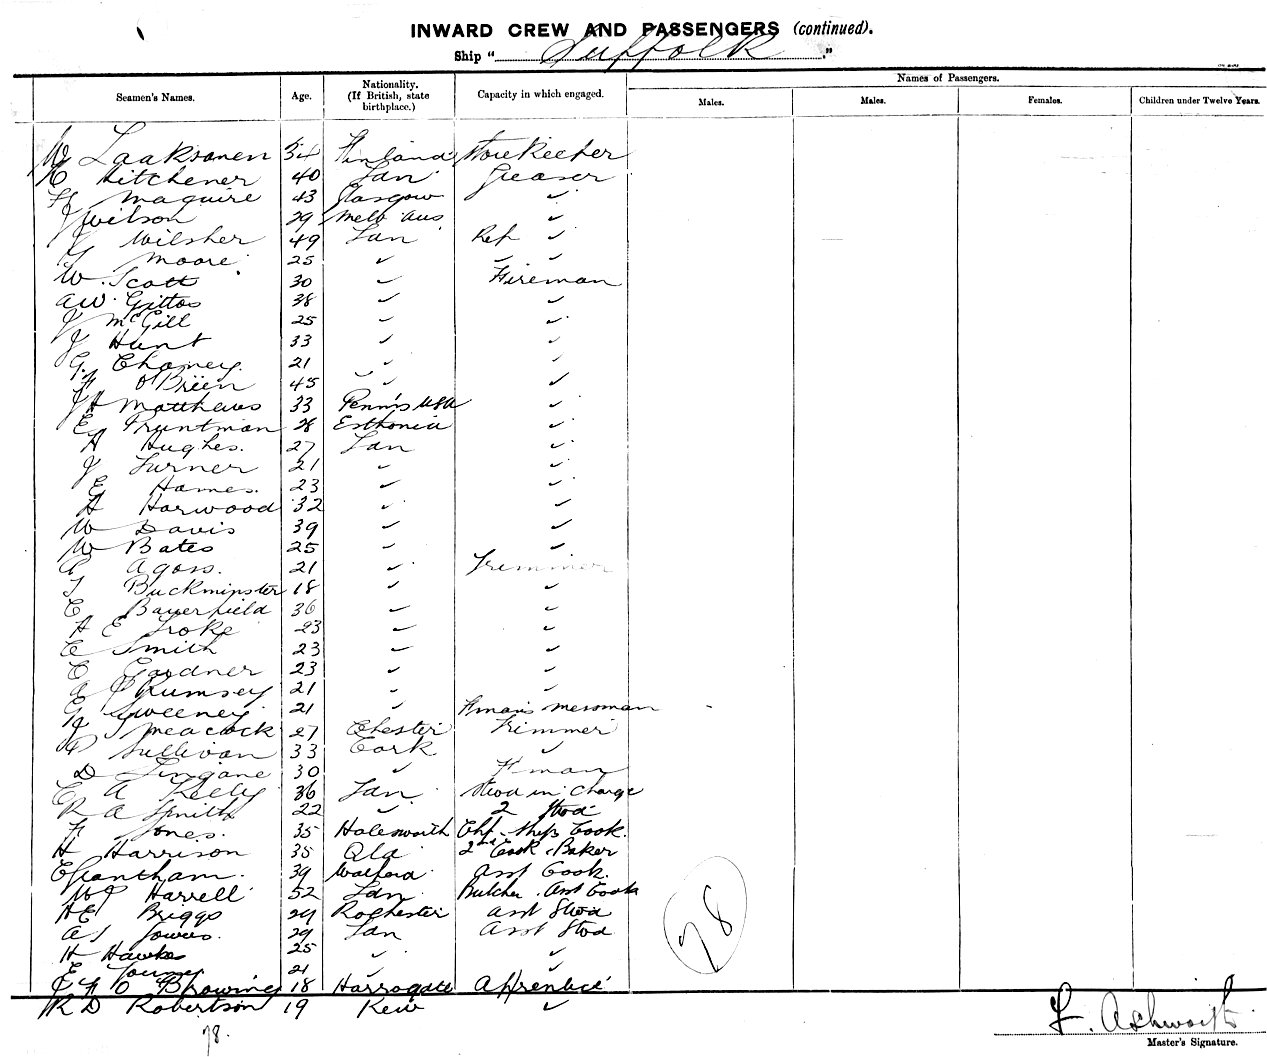 INWARD CREW AND PASSENGERS (continued).
Ship " Suffolk ."
Names of Passengers.
Seamen's Names. Age. Nationality. (If British, state birthplace.) Capacity in which engaged. Males. Males. Females. Children under Twelve Years.
W Laaksonen 34 Finland Storekeeper
C Hitchener 40 Lon Greaser
H Maguire 43 Glasgow ✓
J Wilson 29 Melb Aus ✓
J Wilsher 49 Lon Ref ✓
G Moore 25 ✓ ✓ ✓
W. Scott 30 ✓ Fireman
A W. Gittos 38 ✓ ✓
J McGill 25 ✓ ✓
J Hunt 33 ✓ ✓
G. Chaney. 21 ✓ ✓
O'Brien 45 ✓ ✓
J H Matthews 33 Penn's USA ✓
E Pruntman 28 Esthonia ✓
H Hughes. 27 Lon ✓
J Turner 21 ✓ ✓
E Hames. 23 ✓ ✓
H Harwood 32 ✓ ✓
W Davis 39 ✓ ✓
W Bates 25 ✓ ✓
A Agass. 21 ✓ Trimmer
T Buckminster 18 ✓ ✓
C Baverfield 36 ✓ ✓
H E Troke 23 ✓ ✓
C Smith 23 ✓ ✓
C Gardner 23 ✓ ✓
A P Rumsey 21 ✓ ✓
G Sweeney 21 ✓ F'man's messman
J Meacock 27 Chester Trimmer
P Sullivan 33 Cork ✓
D Lingane 30 ✓ F'man
C A Kelly 36 Lon Stwd in Charge
R A Smith 22 ✓ 2 Stwd
F Jones. 35 Halesworth Chf. Ship's Cook.
H Harrison 35 Qld 2nd Cook & Baker
C Grantham. 39 Watford Asst Cook.
W P Harrell 52 Lon Butcher. Asst Cook
H E Briggs 24 Rochester Asst Stwd
A J Jowers. 29 Lon Asst Stwd
H Hawkes 25 ✓ ✓
E 21 ✓ ✓
F O Browning 18 Harrogate Apprentice
R D Robertson 19 Kew ✓
78
78.
F. Ashworth
Master's Signature.